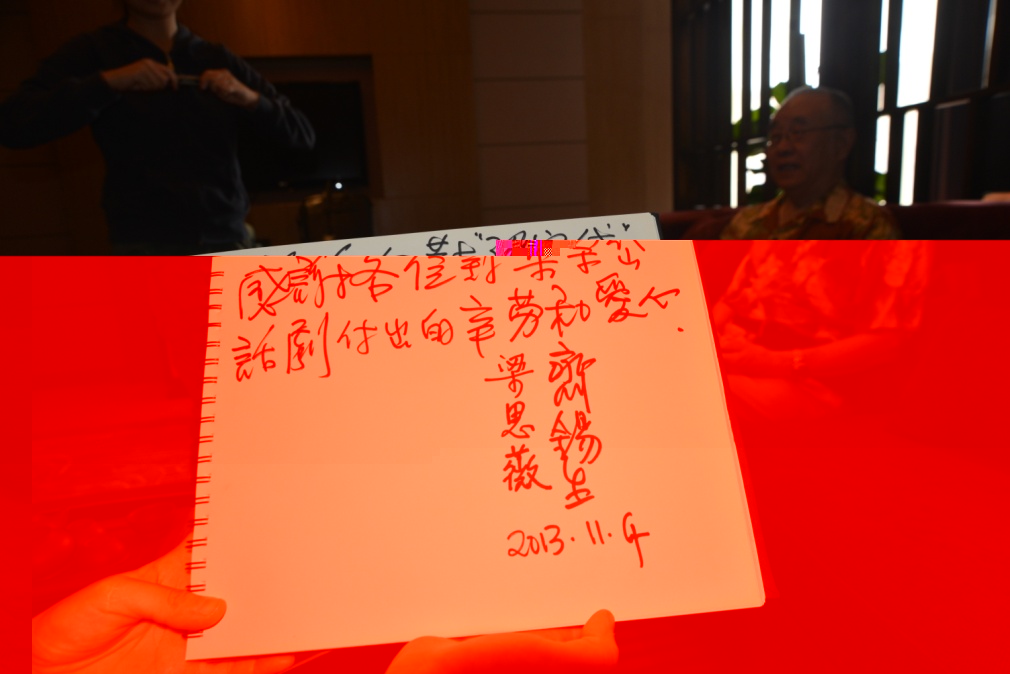 感謝各位對
話劇付出的辛勞和愛心.
齊錫生
梁思薇
2013.11.4